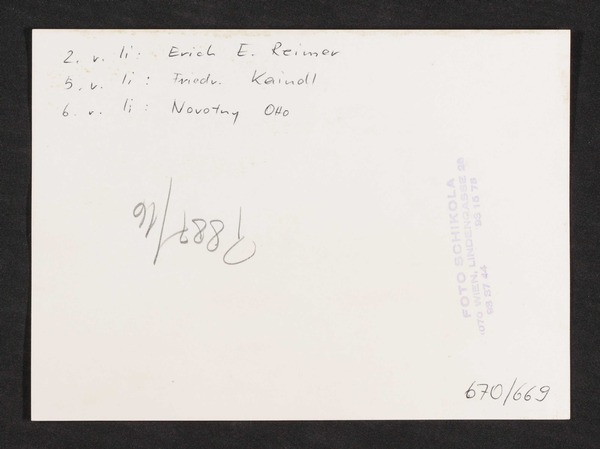 2. v. li: Erich E. Reimer
5. v. li: Friedr. Kaindl
6. v. li: Novotny Otto
P887/16
FOTO SCHIKOLA
1070 WIEN, LINDENGASSE
670/669